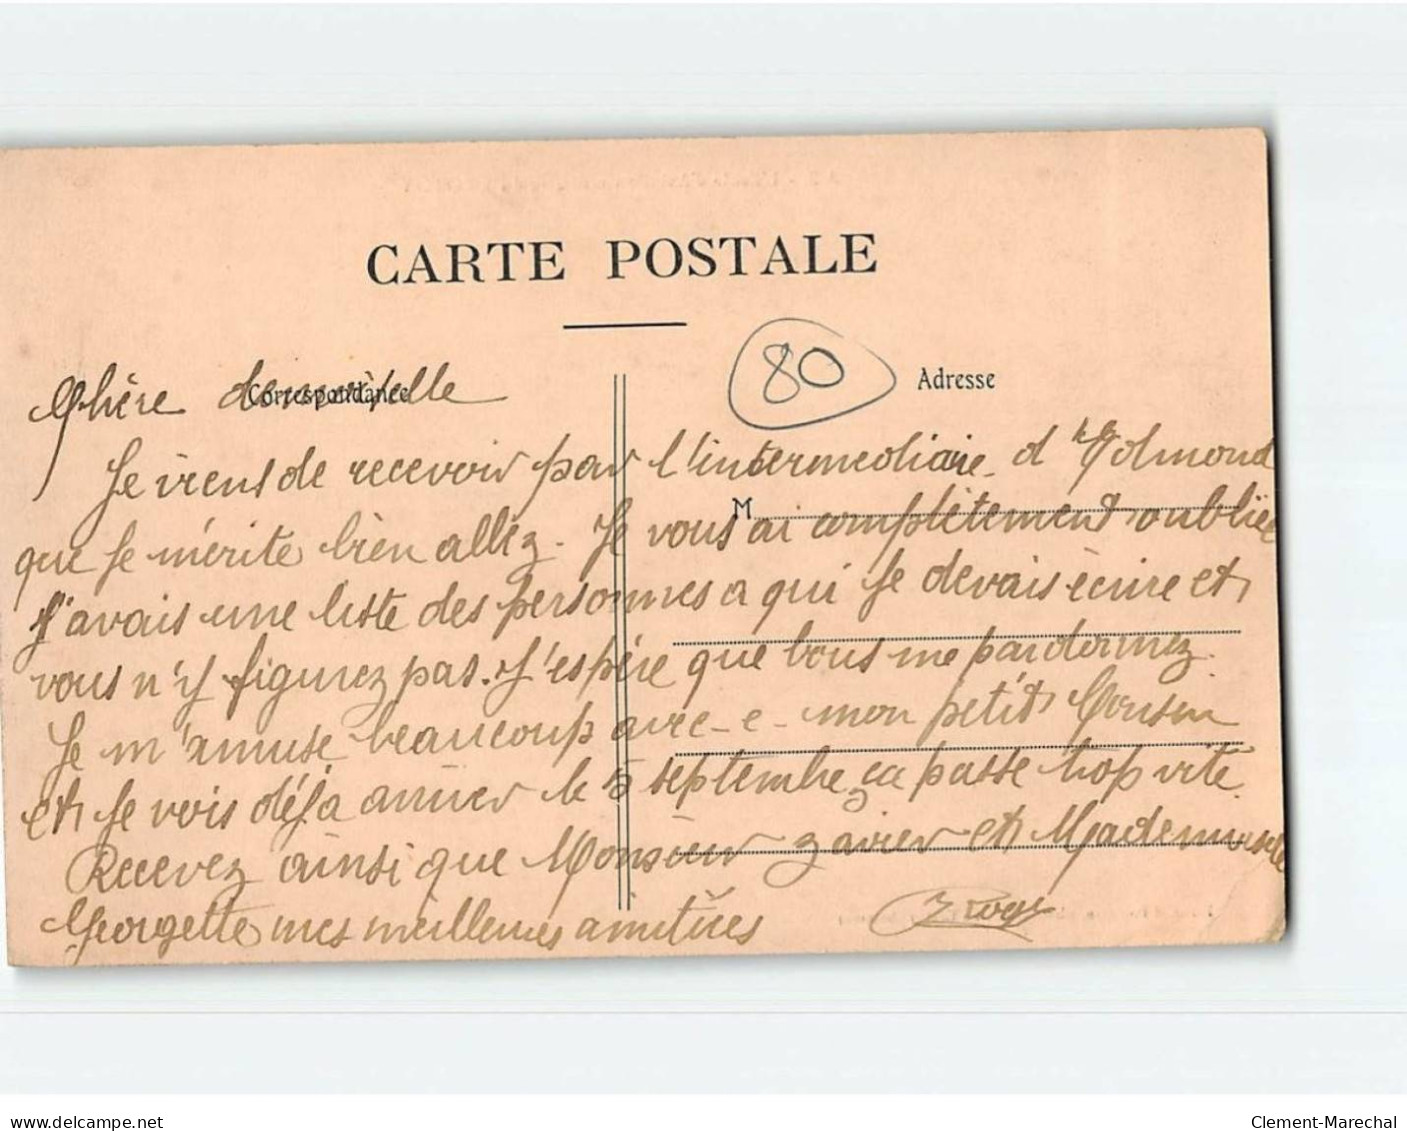 CARTE POSTALE
80
Correspondance
Adresse
M
Chère demoiselle
Je viens de recevoir par l'intermediaire d'Edmond
que je mérite bien allez. Je vous ai complètement oubliée
j'avais une liste des personnes a qui je devais ècrire et
vous n'y figurez pas. J'espére que vous me pardonnez.
Je m'amuse beaucoup avec mon petit Cousin
et je vois déja arriver le 5 septembre, ça passe trop vite.
Recevez ainsi que Monsieur Zavier et Mademoiselle
Georgette mes meilleures amitiées
www.delcampe.net
Clement-Marechal